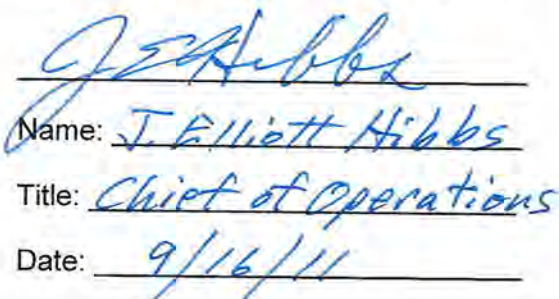 J E Hibbs
Name: J. Elliott Hibbs
Title: Chief of Operations
Date: 9/16/11